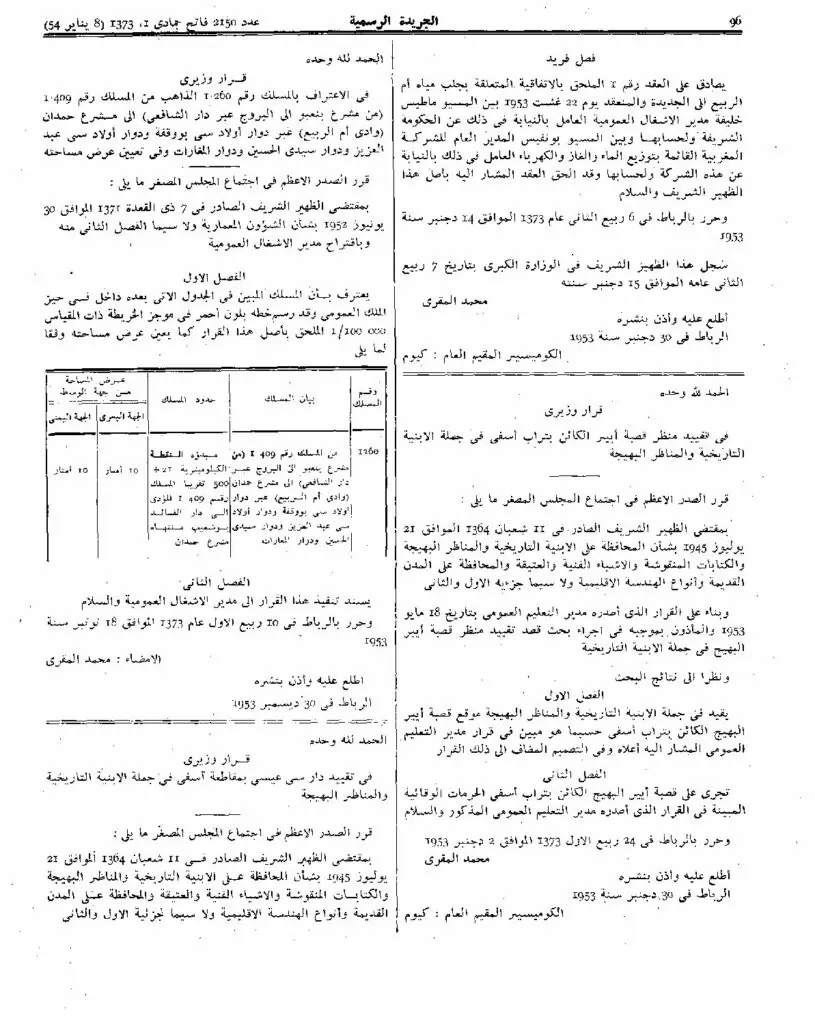 96
الجريدة الرسمية
عدد 2150 فاتح جمادى 1، 1373 (8 يناير 54)
فصل فريد
يصادق على العقد رقم 1 الملحق بالاتفاقية المتعلقة بجلب مياه أم
الربيع الى الجديدة والمنعقد يوم 22 غشت 1953 بين المسيو ماطيس
خليفة مدير الاشغال العمومية العامل بالنيابة فى ذلك عن الحكومة
الشريفة ولحسابها وبين المسيو بونفيس المدير العام للشركة
المغربية القائمة بتوزيع الماء والغاز والكهرباء العامل فى ذلك بالنيابة
عن هذه الشركة ولحسابها وقد الحق العقد المشار اليه بأصل هذا
الظهير الشريف والسلام
وحرر بالرباط فى 6 ربيع الثانى عام 1373 الموافق 14 دجنبر سنة
1953
سجل هذا الظهير الشريف فى الوزارة الكبرى بتاريخ 7 ربيع
الثانى عامه الموافق 15 دجنبر سنته
محمد المقرى
أطلع عليه وأذن بنشره
الرباط فى 30 دجنبر سنة 1953
الكوميسير المقيم العام : كيوم
الحمد لله وحده
قرار وزيرى
فى تقييد منظر قصبة أيير الكائن بتراب أسفى فى جملة الابنية
التاريخية والمناظر البهيجة
قرر الصدر الاعظم فى اجتماع المجلس المصغر ما يلى :
بمقتضى الظهير الشريف الصادر فى 11 شعبان 1364 الموافق 21
يوليوز 1945 بشأن المحافظة على الابنية التاريخية والمناظر البهيجة
والكتابات المنقوشة والاشياء الفنية والعتيقة والمحافظة على المدن
القديمة وأنواع الهندسة الاقليمية ولا سيما جزءيه الاول والثانى
وبناء على القرار الذى أصدره مدير التعليم العمومى بتاريخ 18 مايو
1953 والمأذون بموجبه فى اجراء بحث قصد تقييد منظر قصبة أيير
البهيج فى جملة الابنية التاريخية
ونظرا الى نتائج البحث
الفصل الاول
يقيد فى جملة الابنية التاريخية والمناظر البهيجة موقع قصبة أيير
البهيج الكائن بتراب أسفى حسبما هو مبين فى قرار مدير التعليم
العمومى المشار اليه أعلاه وفى التصميم المضاف الى ذلك القرار
الفصل الثانى
تجرى على قصبة أيير البهيج الكائن بتراب أسفى الحرمات الوقائية
المبينة فى القرار الذى أصدره مدير التعليم العمومى المذكور والسلام
وحرر بالرباط فى 24 ربيع الاول 1373 الموافق 2 دجنبر 1953
محمد المقرى
أطلع عليه وأذن بنشره
الرباط فى 30 دجنبر سنة 1953
الكوميسيير المقيم العام : كيوم
الحمد لله وحده
قرار وزيرى
فى الاعتراف بالمسلك رقم 1.260 الذاهب من المسلك رقم 1.409
(من مشرع بنعبو الى البروج عبر دار الشافعى) الى مشرع حمدان
(وادى أم الربيع) عبر دوار أولاد سى بووقفة ودوار أولاد سى عبد
العزيز ودوار سيدى الحسين ودوار المغارات وفى تعيين عرض مساحته
قرر الصدر الاعظم فى اجتماع المجلس المصغر ما يلى :
بمقتضى الظهير الشريف الصادر فى 7 ذى القعدة 1371 الموافق 30
يونيوز 1952 بشأن الشؤون المعمارية ولا سيما الفصل الثانى منه
وباقتراح مدير الاشغال العمومية
الفصل الاول
يعترف بأن المسلك المبين فى الجدول الاتى بعده داخل فى حيز
الملك العمومى وقد رسم خطه بلون أحمر فى موجز الخريطة ذات المقياس
1/100 000 الملحق بأصل هذا القرار كما يعين عرض مساحته وفقا
لما يلى
رقم المسلك
بيان المسلك
حدود المسلك
عرض المساحة
من جهة الوسط
الجهة اليسرى
الجهة اليمنى
1260
من المسلك رقم 409 1 (من
مشرع بنعبو الى البروج عبر
دار الشافعى) الى مشرع حمدان
(وادى أم الربيع) عبر دوار
أولاد سى بووقفة ودوار أولاد
سى عبد العزيز ودوار سيدى
الحسين ودوار المغارات
مبدؤه النقطة
الكيلومترية 21 +
500 تقريبا المسلك
رقم 409 1 المؤدى
الى دار القائد
بوشعيب منتهاه
مشرع حمدان
10 أمتار
10 أمتار
الفصل الثانى
يسند تنفيذ هذا القرار الى مدير الاشغال العمومية والسلام
وحرر بالرباط فى 10 ربيع الاول عام 1373 الموافق 18 نونبر سنة
1953
الامضاء : محمد المقرى
اطلع عليه وأذن بنشره
الرباط فى 30 ديسمبر 1953
الحمد لله وحده
قرار وزيرى
فى تقييد دار سى عيسى بمقاطعة أسفى فى جملة الابنية التاريخية
والمناظر البهيجة
قرر الصدر الاعظم فى اجتماع المجلس المصغر ما يلى :
بمقتضى الظهير الشريف الصادر فى 11 شعبان 1364 الموافق 21
يوليوز 1945 بشأن المحافظة على الابنية التاريخية والمناظر البهيجة
والكتابات المنقوشة والاشياء الفنية والعتيقة والمحافظة على المدن
القديمة وأنواع الهندسة الاقليمية ولا سيما جزئية الاول والثانى